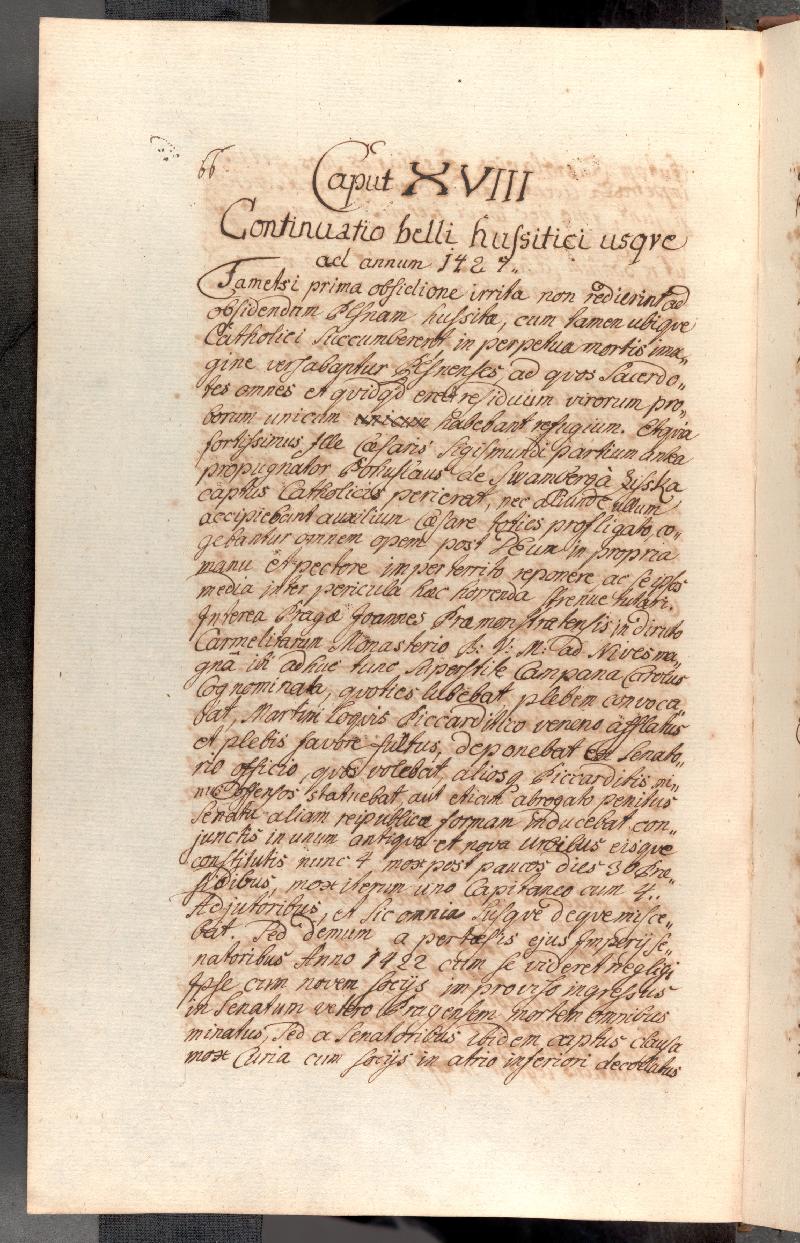 66
Caput XVIII
Continuatio belli hussitici usqve
ad annum 1427.
Tametsi prima obsidione irrita non redierint ad
obsidendum Plsnam hussitæ, cum tamen ubiqve
Catholici succumberent, in perpetua mortis ima„
gine versabantur Plsnenses ad qvos Sacerdo„
tes omnes et qvidqd erat residuum virorum pro„
borum unicum habebant refugium. Et qvia
fortissimus Ille Cæsaris Sigismundi partium antea
propugnator Bohuslaus de Swanberga Zisska
captus Catholicis perierat, nec aliunde ullum
accipiebant auxilium Cæsare toties profligato, co„
gebantur omnem opem post DEum in propria
manu et pectore imperterrito reponere, ac se ipsos
media inter pericula hæc horrenda strenue tutari.
Interea Pragæ Joannes Præmonstratensis, in diruto
Carmelitarum Monasterio B: V: M: ad Nives ma„
gnâ ibi adhuc tunc superstite Campana Carolus
Cognominata, quoties lubebat, plebem convoca„
bat, Martini Loqvis Piccarditico veneno afflatus
et plebis favore fultus, deponebat Senato„
rio officio, qvos volebat, alios q Piccarditis mi„
nus offensos statuebat, aut etiam abrogato penitus
Senatu aliam reipublicæ formam inducebat con„
junctis in unum antiqva et nova Urbibus eisqve
constitutis nunc 4 mox post paucos dies 30 Præ„
sidibus, mox iterum uno Capitaneo cum 4.
Adjutoribus, et sic omnia susqve deqve misce„
bat. Sed demum a pertæsis ejus Imperij se„
natoribus Anno 1422 cum se videret negligi
Ipse cum novem socijs improviso ingressus
in Senatum vetero Pragensem mortem omnibus
minatus, sed a Senatoribus ibidem captus clausa
mox Curia cum socijs in atrio inferiori decollatus